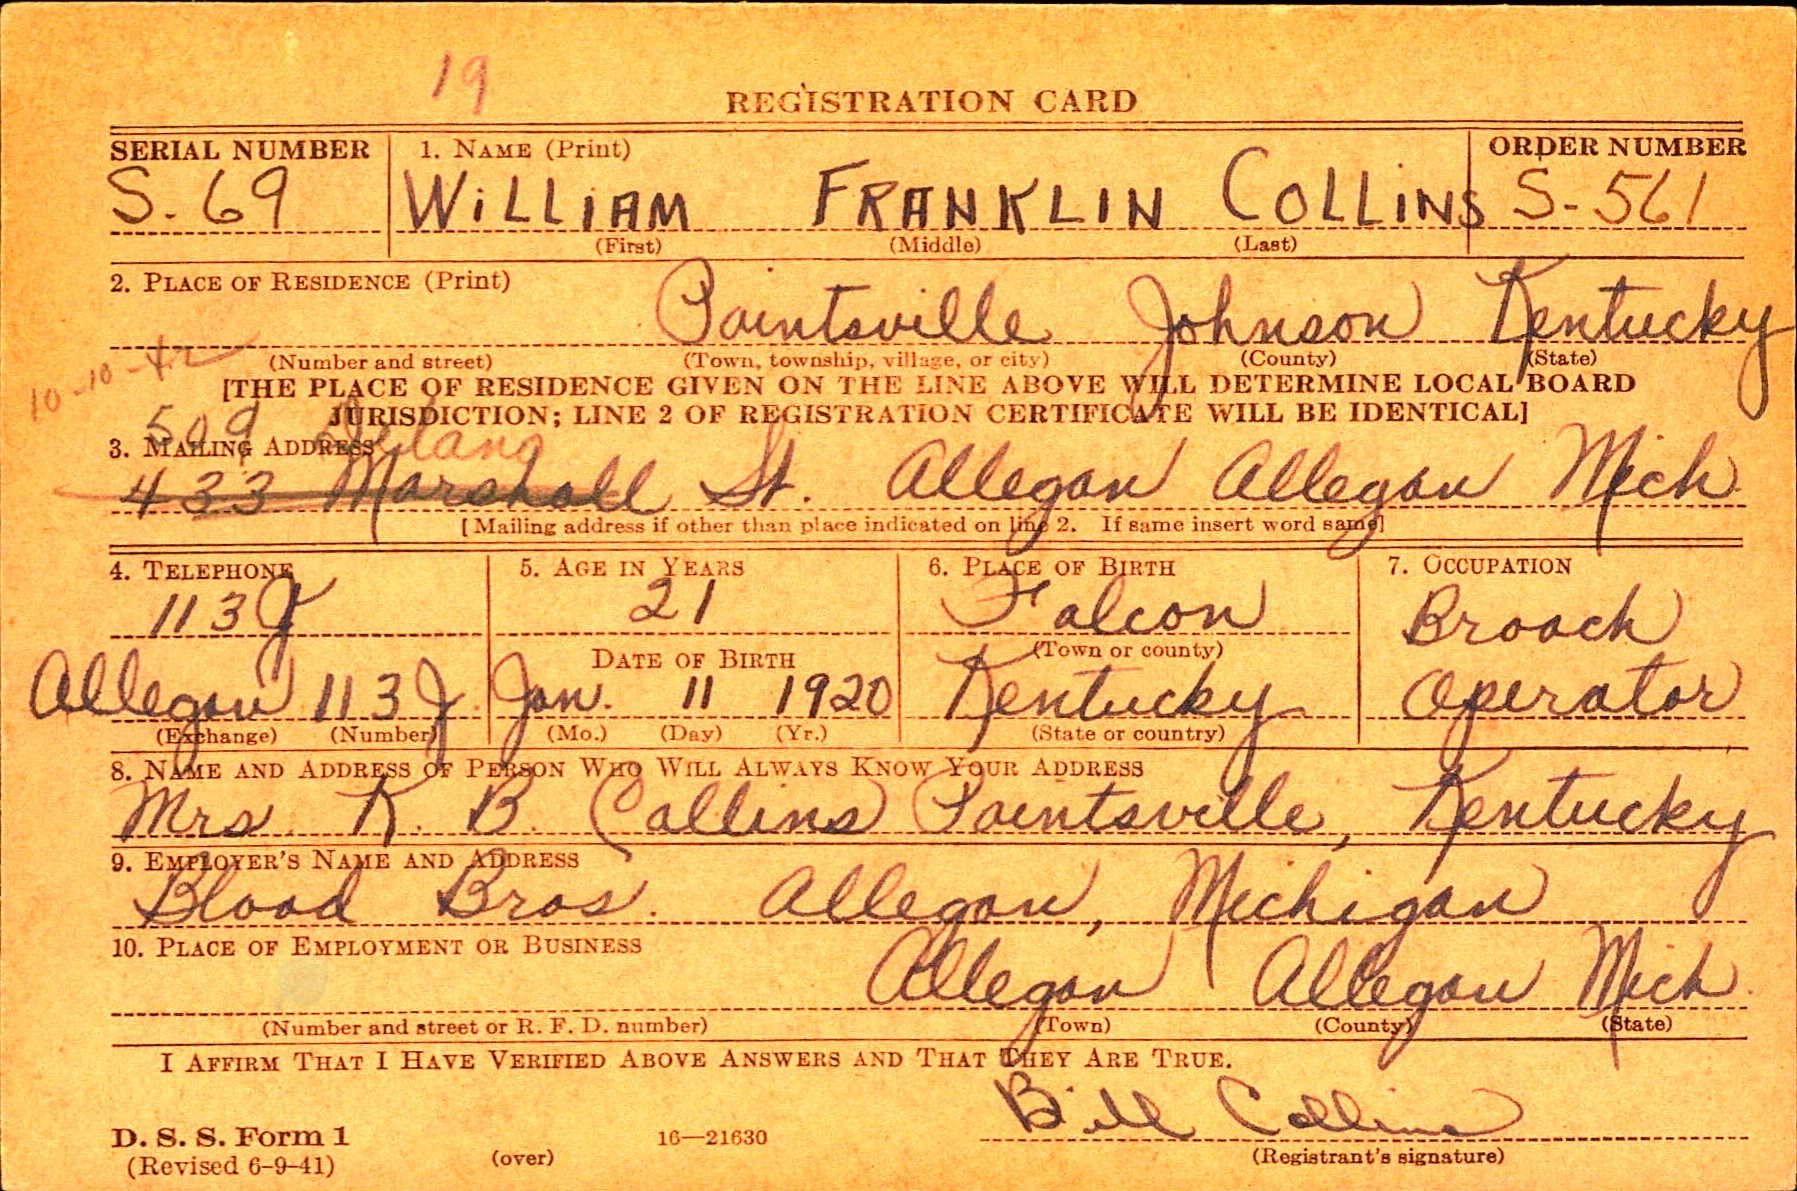 19
REGISTRATION CARD
SERIAL NUMBER 1. NAME (Print) ORDER NUMBER
S. 69 WiLLiAM FRANKLIN COLLiNS S-561
(First) (Middle) (Last)
2. PLACE OF RESIDENCE (Print)
Paintsville Johnson Kentucky
(Number and street) (Town, township, village, or city) (County) (State)
10-10-42
[THE PLACE OF RESIDENCE GIVEN ON THE LINE ABOVE WILL DETERMINE LOCAL BOARD
JURISDICTION; LINE 2 OF REGISTRATION CERTIFICATE WILL BE IDENTICAL]
509 Delano
3. MAILING ADDRESS
433 Marshall St. Allegan Allegan Mich
[Mailing address if other than place indicated on line 2. If same insert word same]
4. TELEPHONE 5. AGE IN YEARS 6. PLACE OF BIRTH 7. OCCUPATION
113 J 21 Falcon Broach
DATE OF BIRTH (Town or county)
Allegan 113 J Jan. 11 1920 Kentucky Operator
(Exchange) (Number) (Mo.) (Day) (Yr.) (State or country)
8. NAME AND ADDRESS OF PERSON WHO WILL ALWAYS KNOW YOUR ADDRESS
Mrs. K. B. Collins Paintsville, Kentucky
9. EMPLOYER'S NAME AND ADDRESS
Blood Bros. Allegan, Michigan
10. PLACE OF EMPLOYMENT OR BUSINESS
Allegan Allegan Mich.
(Number and street or R. F. D. number) (Town) (County) (State)
I AFFIRM THAT I HAVE VERIFIED ABOVE ANSWERS AND THAT THEY ARE TRUE.
Bill Collins
D. S. S. Form 1
(Revised 6-9-41) (over) 16—21630 (Registrant's signature)